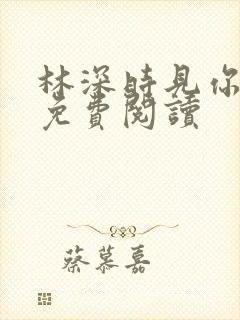 林深時見你
免費閱讀
蔡慕嘉